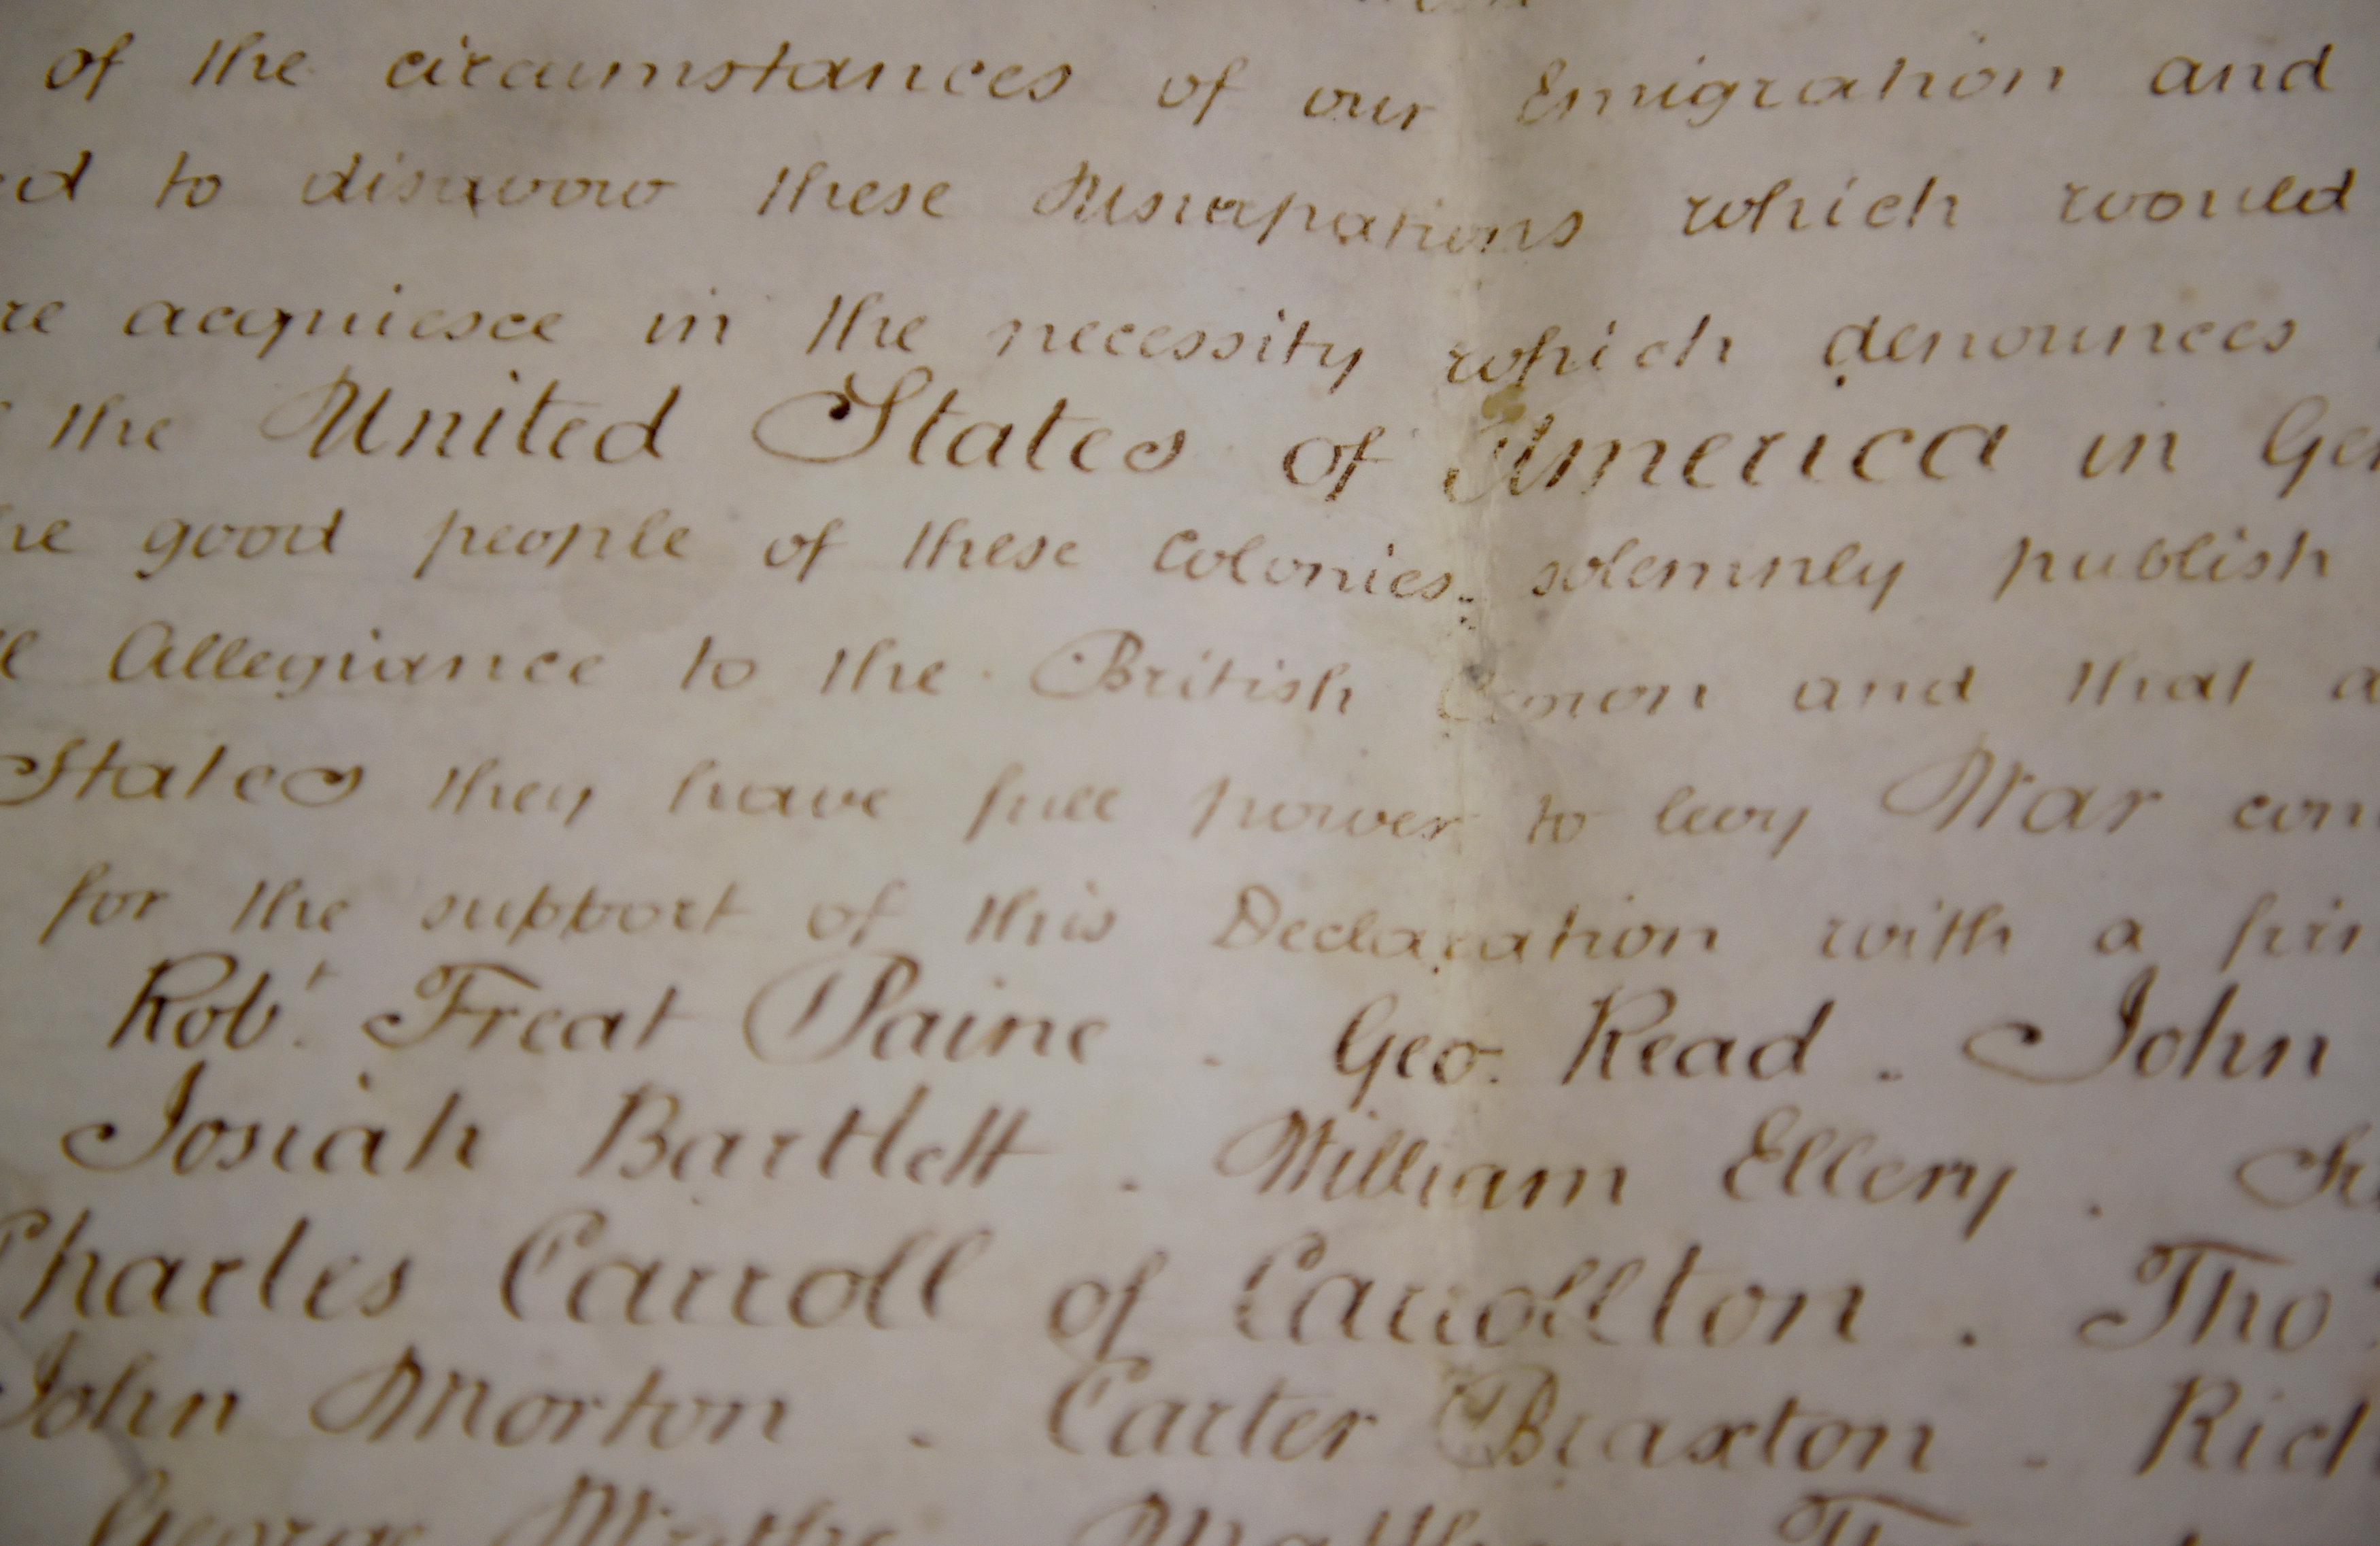 of the circumstances of our Emigration and
ed to disavow these Usurpations which would
re acquiesce in the necessity which denounces
the United States of America in Ge
he good people of these Colonies, solemnly publish
l Allegiance to the British Crown and that a
States they have full power to levy War con
for the support of this Declaration with a fir
Rob.t Treat Paine . Geo. Read . John
Josiah Bartlett . William Ellery .
Charles Carroll of Carrollton . Tho
John Morton . Carter Braxton . Rich
George Wythe